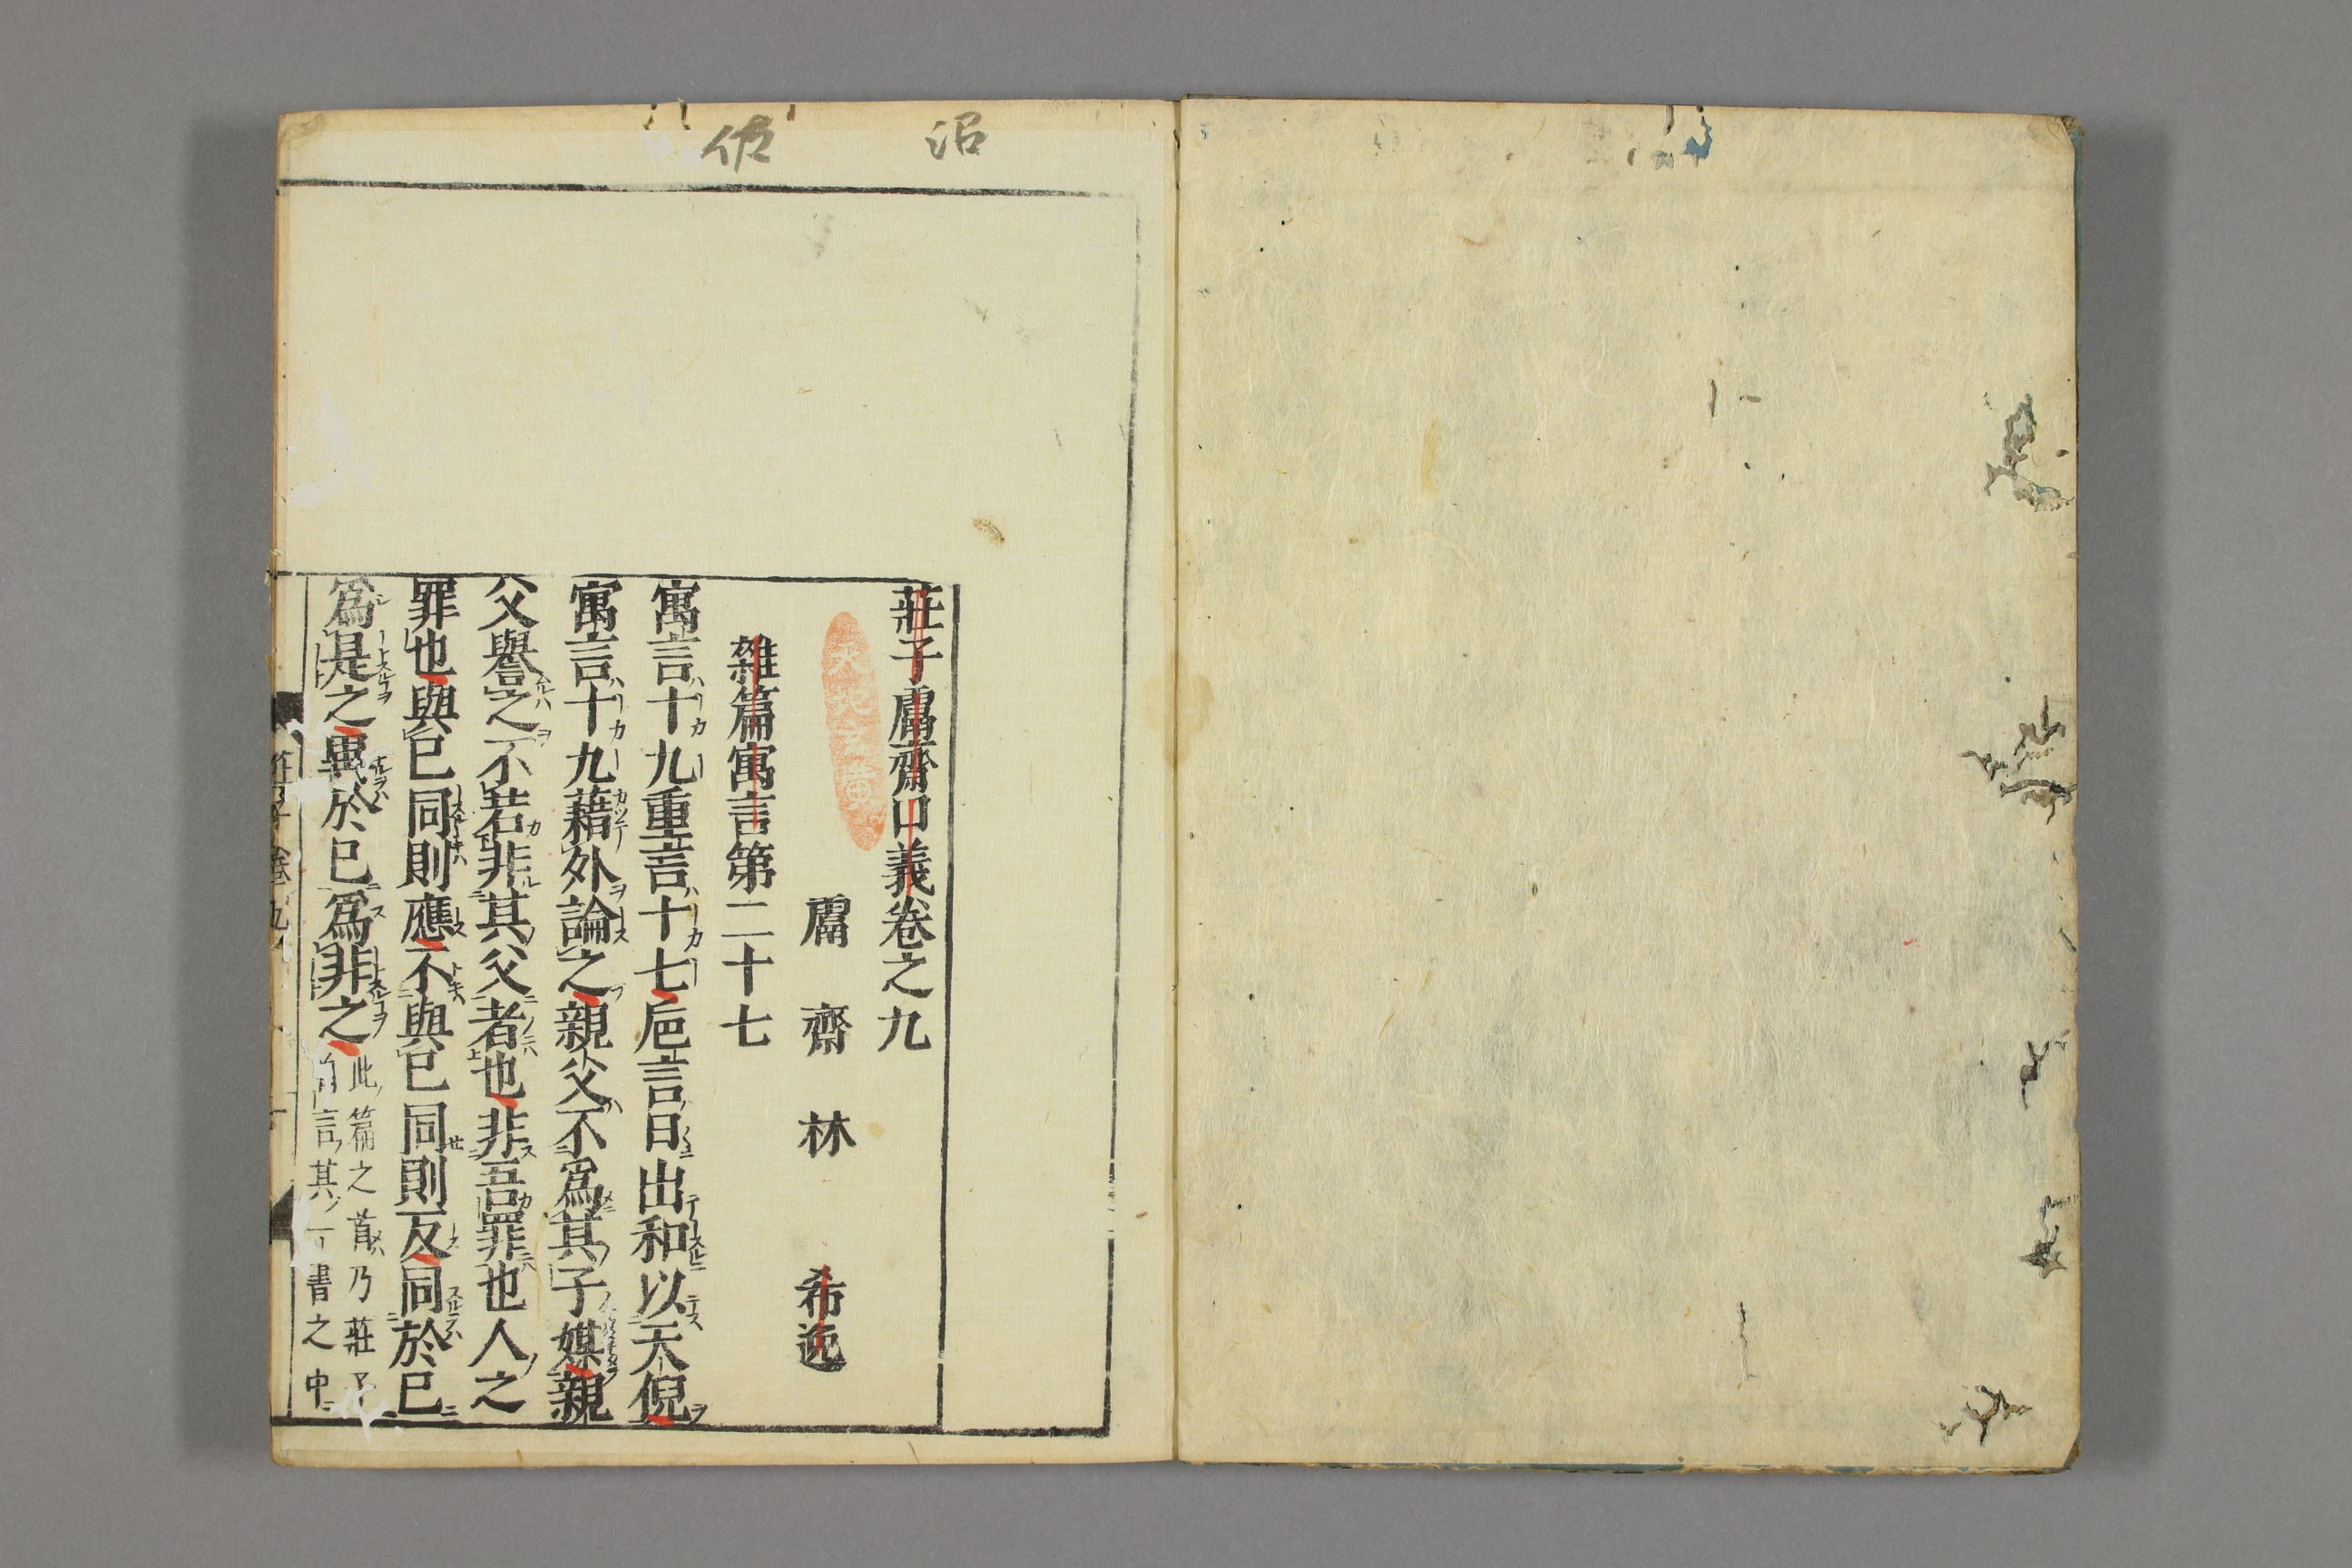 沼 佐
莊子鬳齋口義卷之九
鬳齋林希逸
雜篇寓言第二十七
寓言十九重言十七巵言日出和以天倪
寓言十九藉外論之親父不爲其子媒親
父譽之不若非其父者也非吾罪也人之
罪也與已同則應不與已同則反同於已
爲是之異於已爲非之
此篇之首乃莊子
言其一書之中
莊子卷九